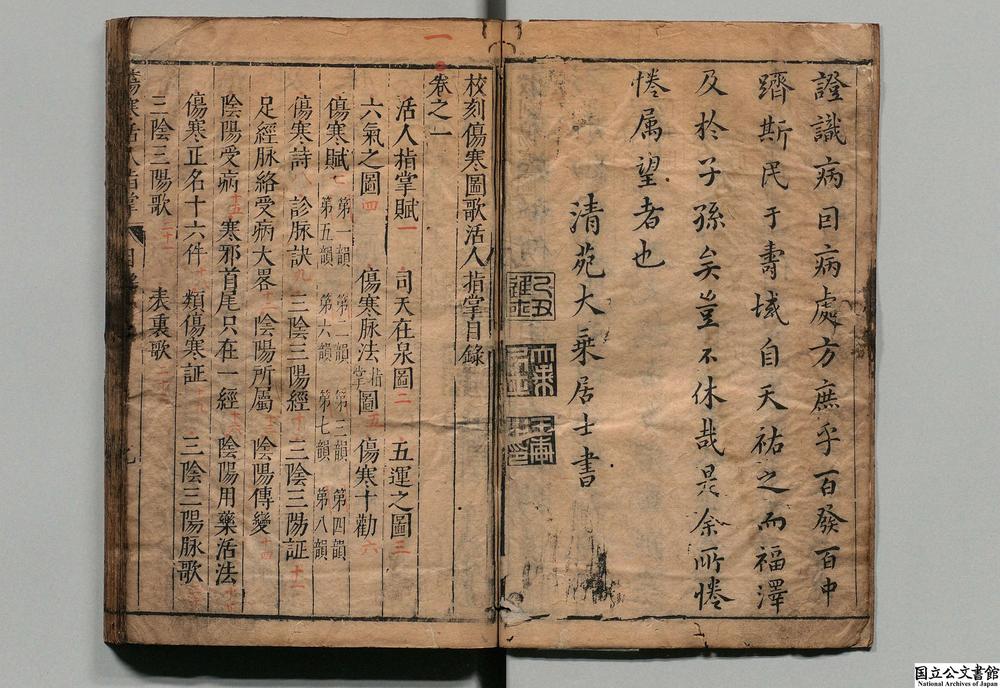 證識病因病處方庶乎百發百中
躋斯民于壽域自天祐之而福澤
及於子孫矣豈不休哉是余所惓
惓属望者也
清苑大乗居士書
校刻傷寒圖歌活人指掌目錄
卷之一
活人指掌賦一 司天在泉圖二 五運之圖三
六氣之圖四 傷寒脉法指掌圖五 傷寒十勸六
傷寒賦七 第一韻 第二韻 第三韻 第四韻 第五韻 第六韻 第七韻 第八韻
傷寒詩八 診脉訣九 三陰三陽經十 三陰三陽証十一
足經脉絡受病大畧 陰陽所屬 陰陽傳變十四
陰陽受病十五 寒邪首尾只在一經十六 陰陽用藥活法
傷寒正名十六件 類傷寒証十九 三陰三陽脉歌二十
三陰三陽歌二十一 表裏歌
傷寒活人指掌 目錄
国立公文書館
National Archives of Japan